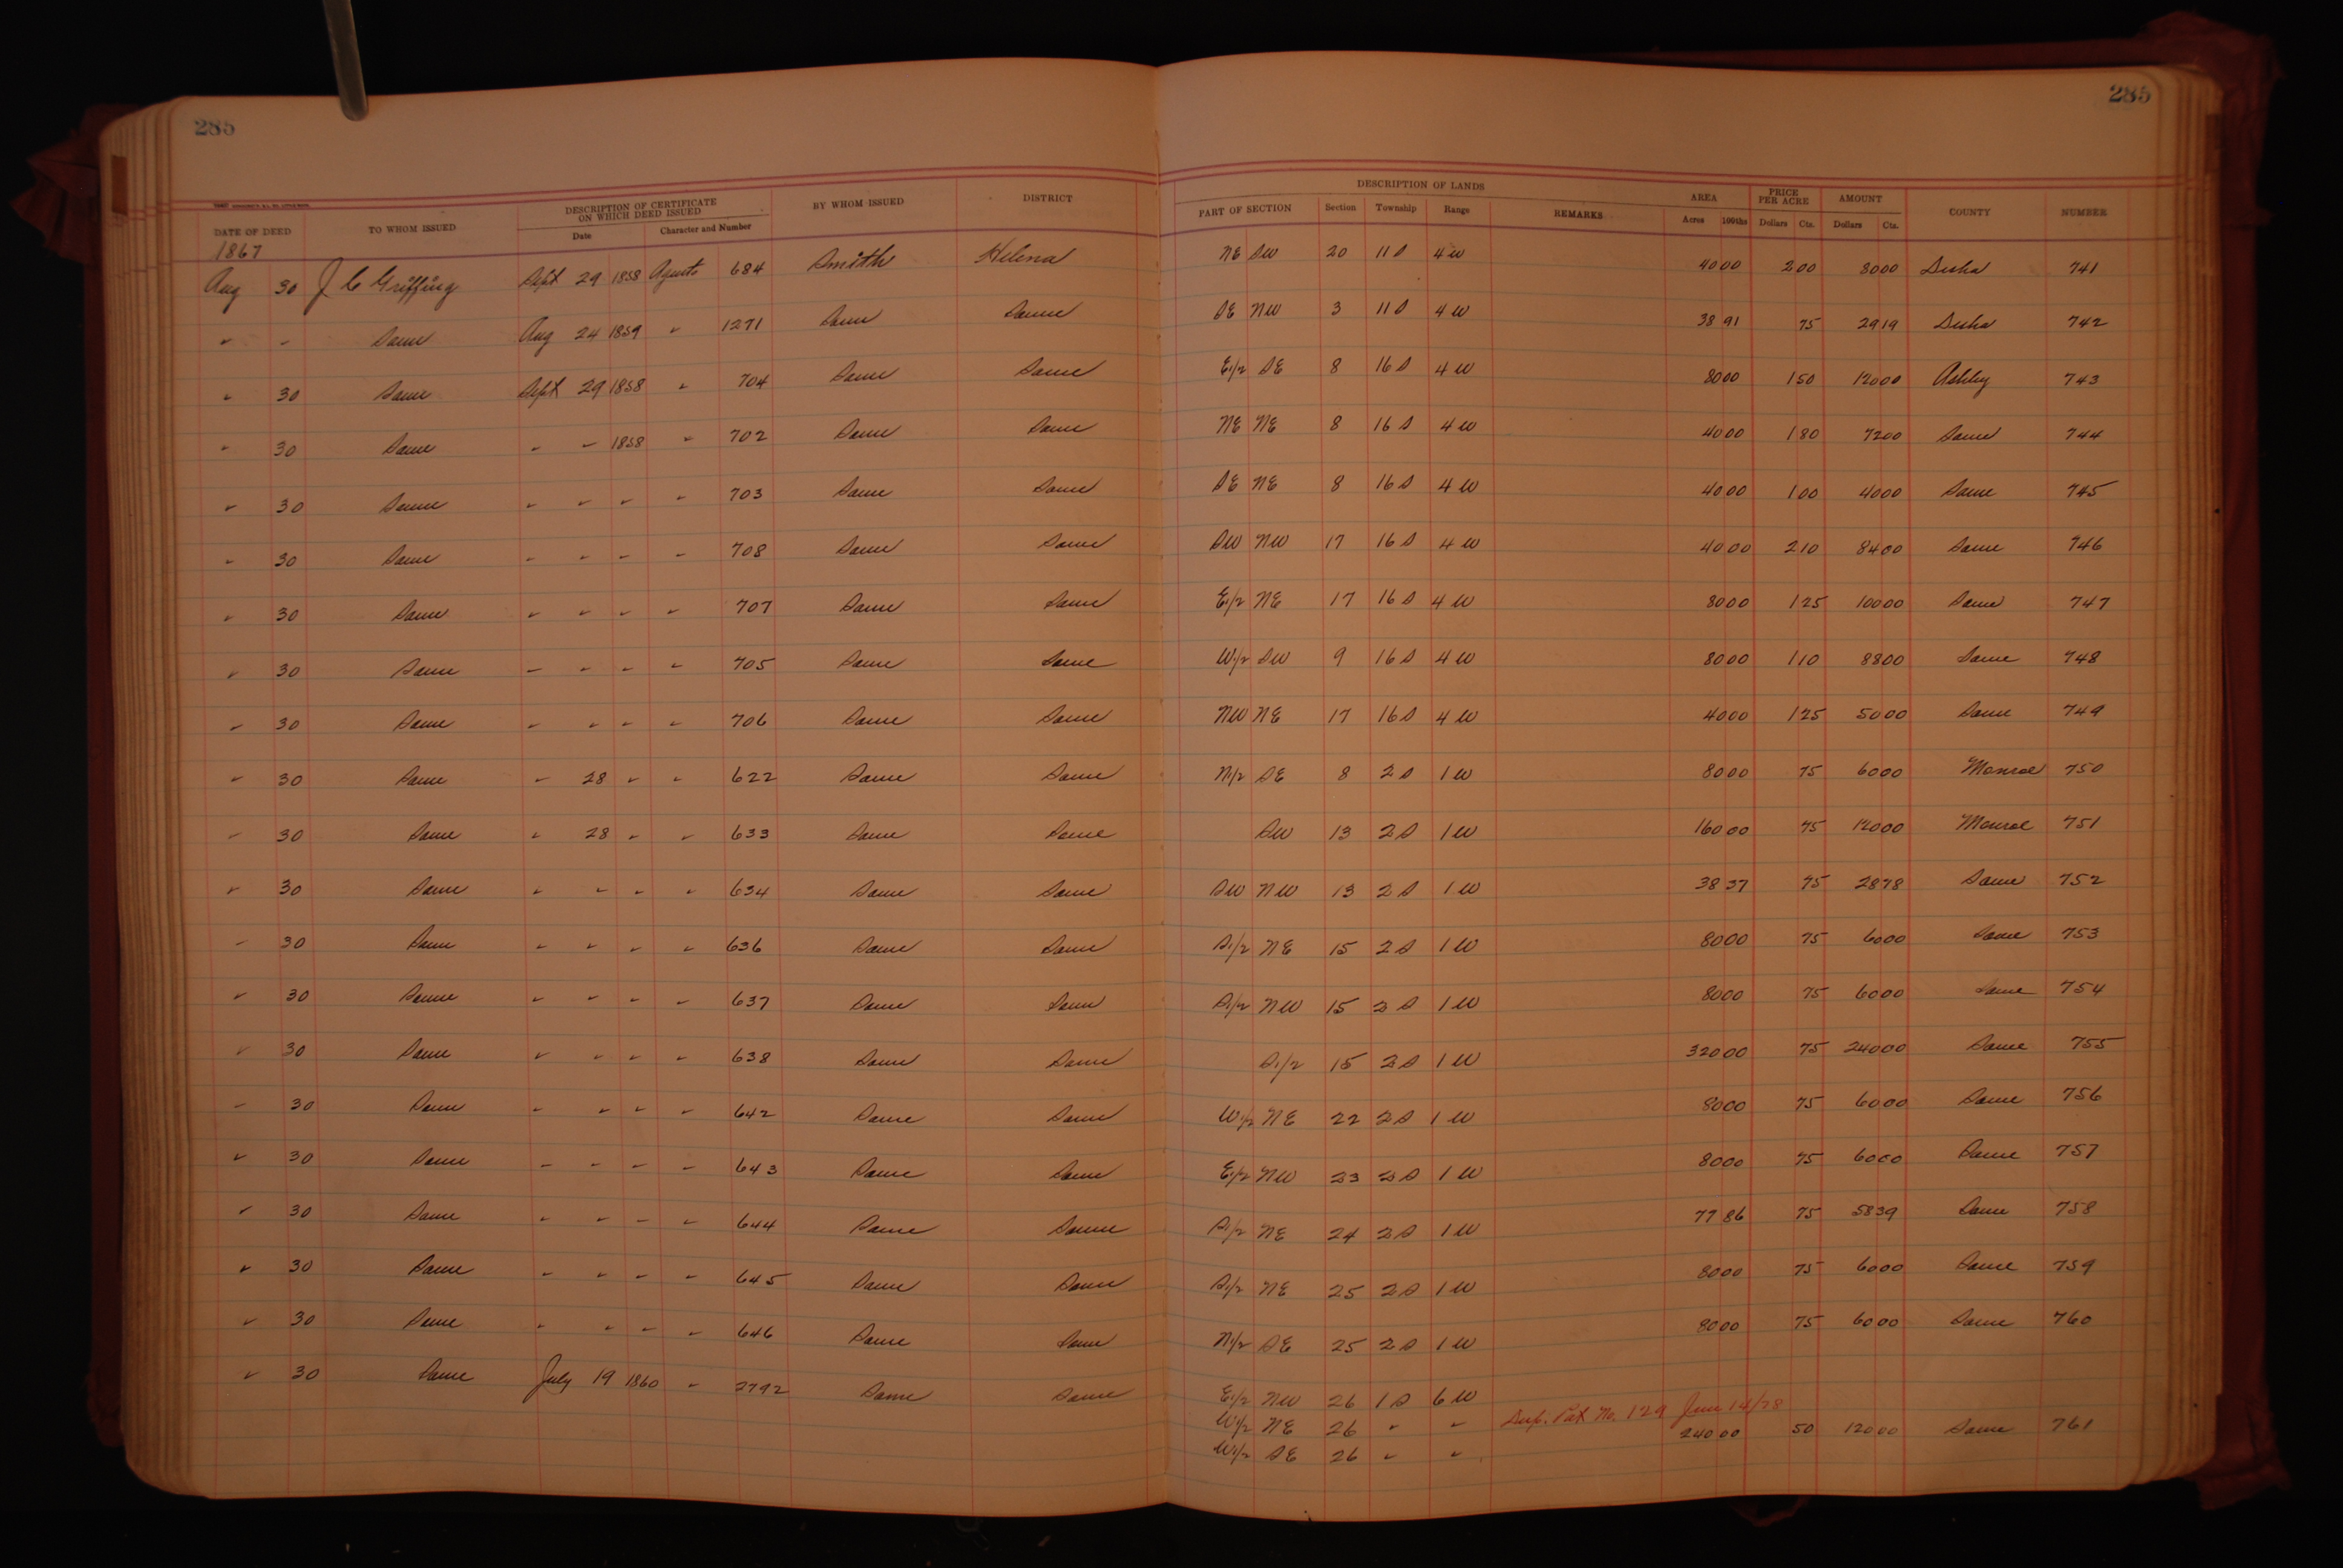 285 285
DESCRIPTION OF LANDS
DATE OF DEED TO WHOM ISSUED DESCRIPTION OF CERTIFICATE ON WHICH DEED ISSUED Date Character and Number BY WHOM ISSUED DISTRICT PART OF SECTION Section Township Range REMARKS AREA Acres 100ths PRICE PER ACRE Dollars Cts. AMOUNT Dollars Cts. COUNTY NUMBER
1867
Aug 30 J C Griffing Sept 29 1858 Agents 684 Smith Helena NE SW 20 11 S 4 W 40 00 2 00 80 00 Desha 741
" " Same Aug 24 1859 " 1271 Same Same SE NW 3 11 S 4 W 38 91 75 29 19 Desha 742
" 30 Same Sept 29 1858 " 704 Same Same E1/2 SE 8 16 S 4 W 80 00 1 50 120 00 Ashley 743
" 30 Same " " 1858 " 702 Same Same NE NE 8 16 S 4 W 40 00 1 80 72 00 Same 744
" 30 Same " " " " 703 Same Same SE NE 8 16 S 4 W 40 00 1 00 40 00 Same 745
" 30 Same " " " " 708 Same Same SW NW 17 16 S 4 W 40 00 2 10 84 00 Same 746
" 30 Same " " " " 707 Same Same E1/2 NE 17 16 S 4 W 80 00 1 25 100 00 Same 747
" 30 Same " " " " 705 Same Same W1/2 SW 9 16 S 4 W 80 00 1 10 88 00 Same 748
" 30 Same " " " " 706 Same Same NW NE 17 16 S 4 W 40 00 1 25 50 00 Same 749
" 30 Same " 28 " " 622 Same Same N1/2 SE 8 2 S 1 W 80 00 75 60 00 Monroe 750
" 30 Same " 28 " " 633 Same Same SW 13 2 S 1 W 160 00 75 120 00 Monroe 751
" 30 Same " " " " 634 Same Same SW NW 13 2 S 1 W 38 37 75 28 78 Same 752
" 30 Same " " " " 636 Same Same S1/2 NE 15 2 S 1 W 80 00 75 60 00 Same 753
" 30 Same " " " " 637 Same Same S1/2 NW 15 2 S 1 W 80 00 75 60 00 Same 754
" 30 Same " " " " 638 Same Same S1/2 15 2 S 1 W 320 00 75 240 00 Same 755
" 30 Same " " " " 642 Same Same W1/2 NE 22 2 S 1 W 80 00 75 60 00 Same 756
" 30 Same " " " " 643 Same Same E1/2 NW 23 2 S 1 W 80 00 75 60 00 Same 757
" 30 Same " " " " 644 Same Same S1/2 NE 24 2 S 1 W 77 86 75 58 39 Same 758
" 30 Same " " " " 645 Same Same S1/2 NE 25 2 S 1 W 80 00 75 60 00 Same 759
" 30 Same " " " " 646 Same Same N1/2 SE 25 2 S 1 W 80 00 75 60 00 Same 760
" 30 Same July 19 1860 " 2792 Same Same E1/2 NW 26 1 S 6 W
W1/2 NE 26 " " Dup. Pat No. 129 June 14/28 240 00 50 120 00 Same 761
W1/2 SE 26 " "